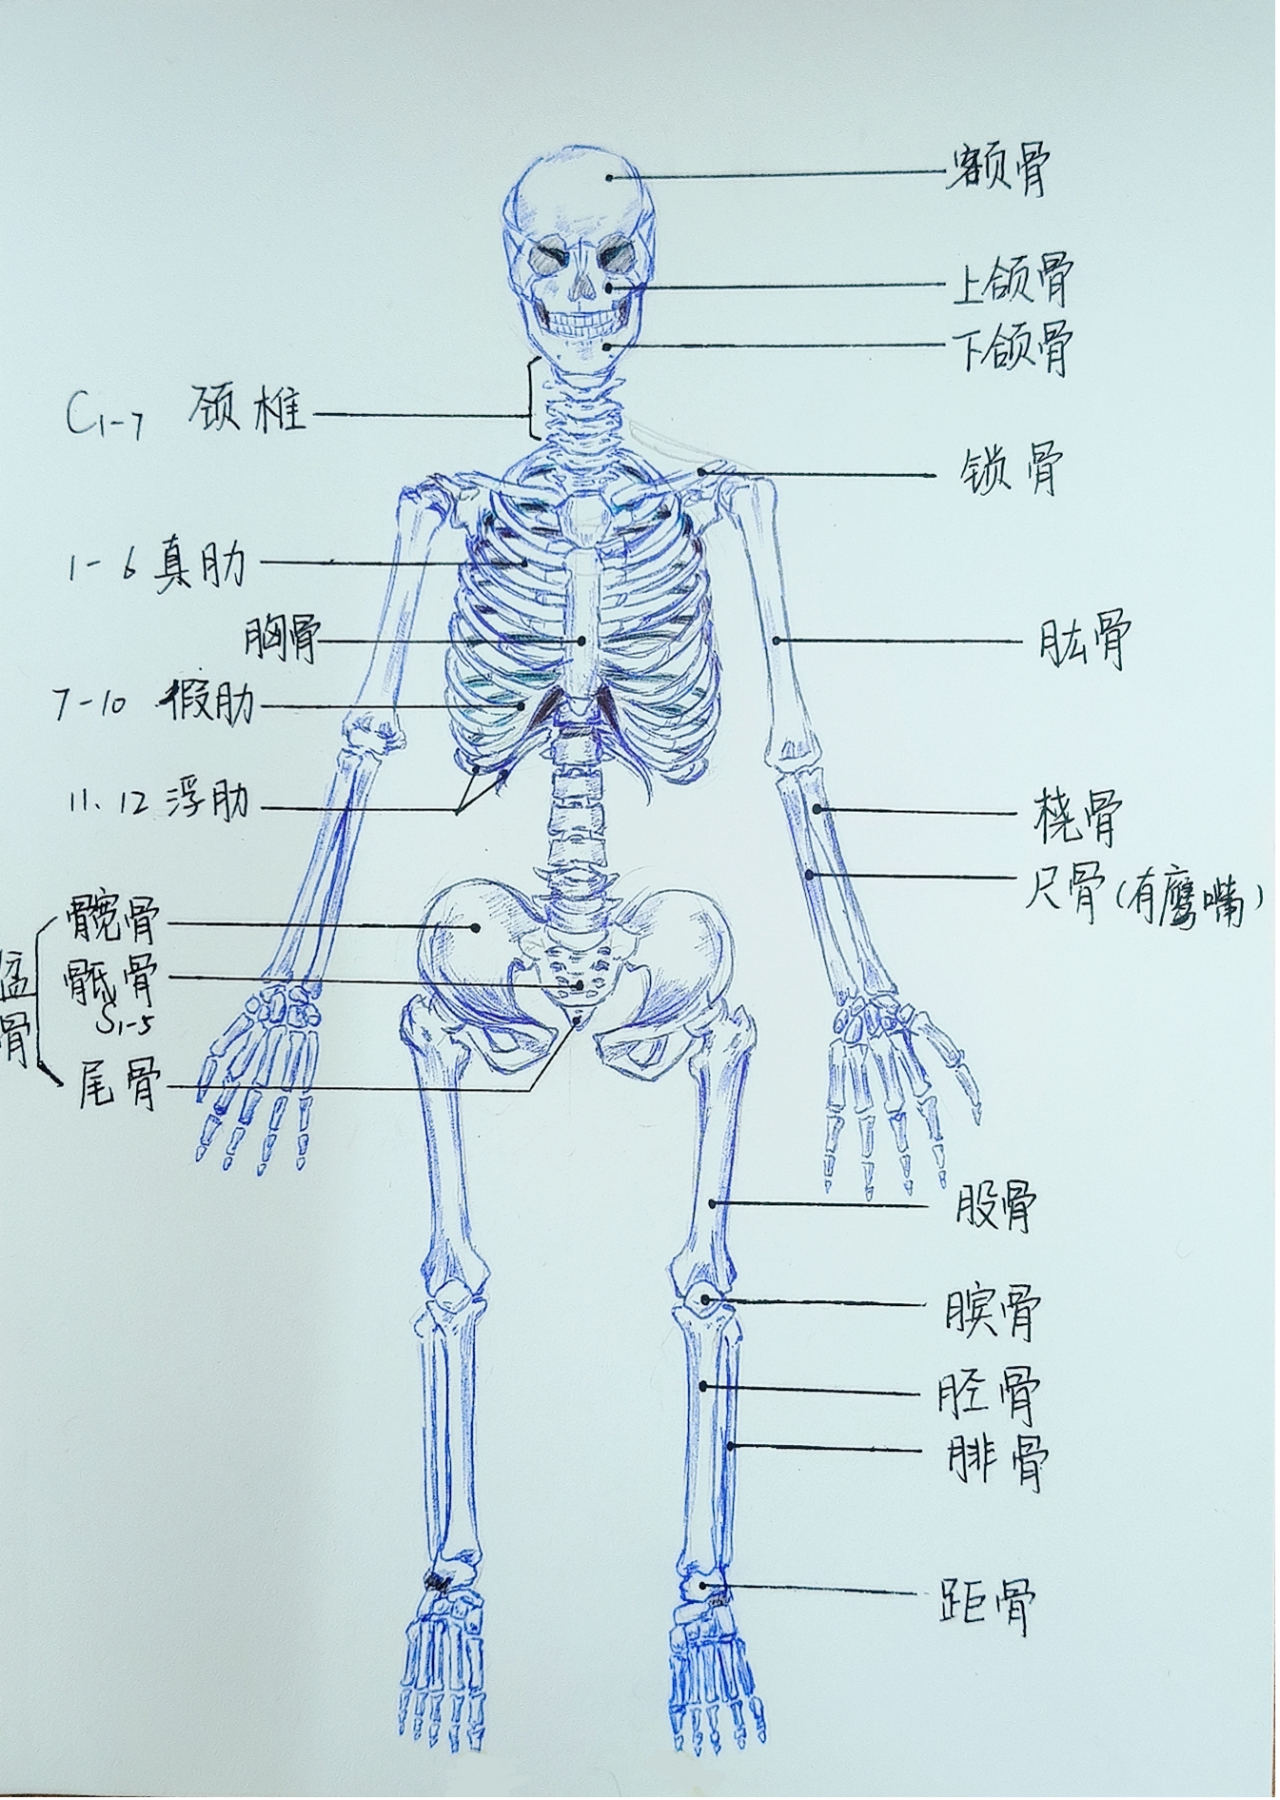 额骨
上颌骨
下颌骨
C1-7 颈椎
锁骨
1-6 真肋
胸骨
肱骨
7-10 假肋
11、12 浮肋
桡骨
尺骨(有鹰嘴)
髋骨
骶骨
S1-5
骨
尾骨
股骨
膑骨
胫骨
腓骨
距骨